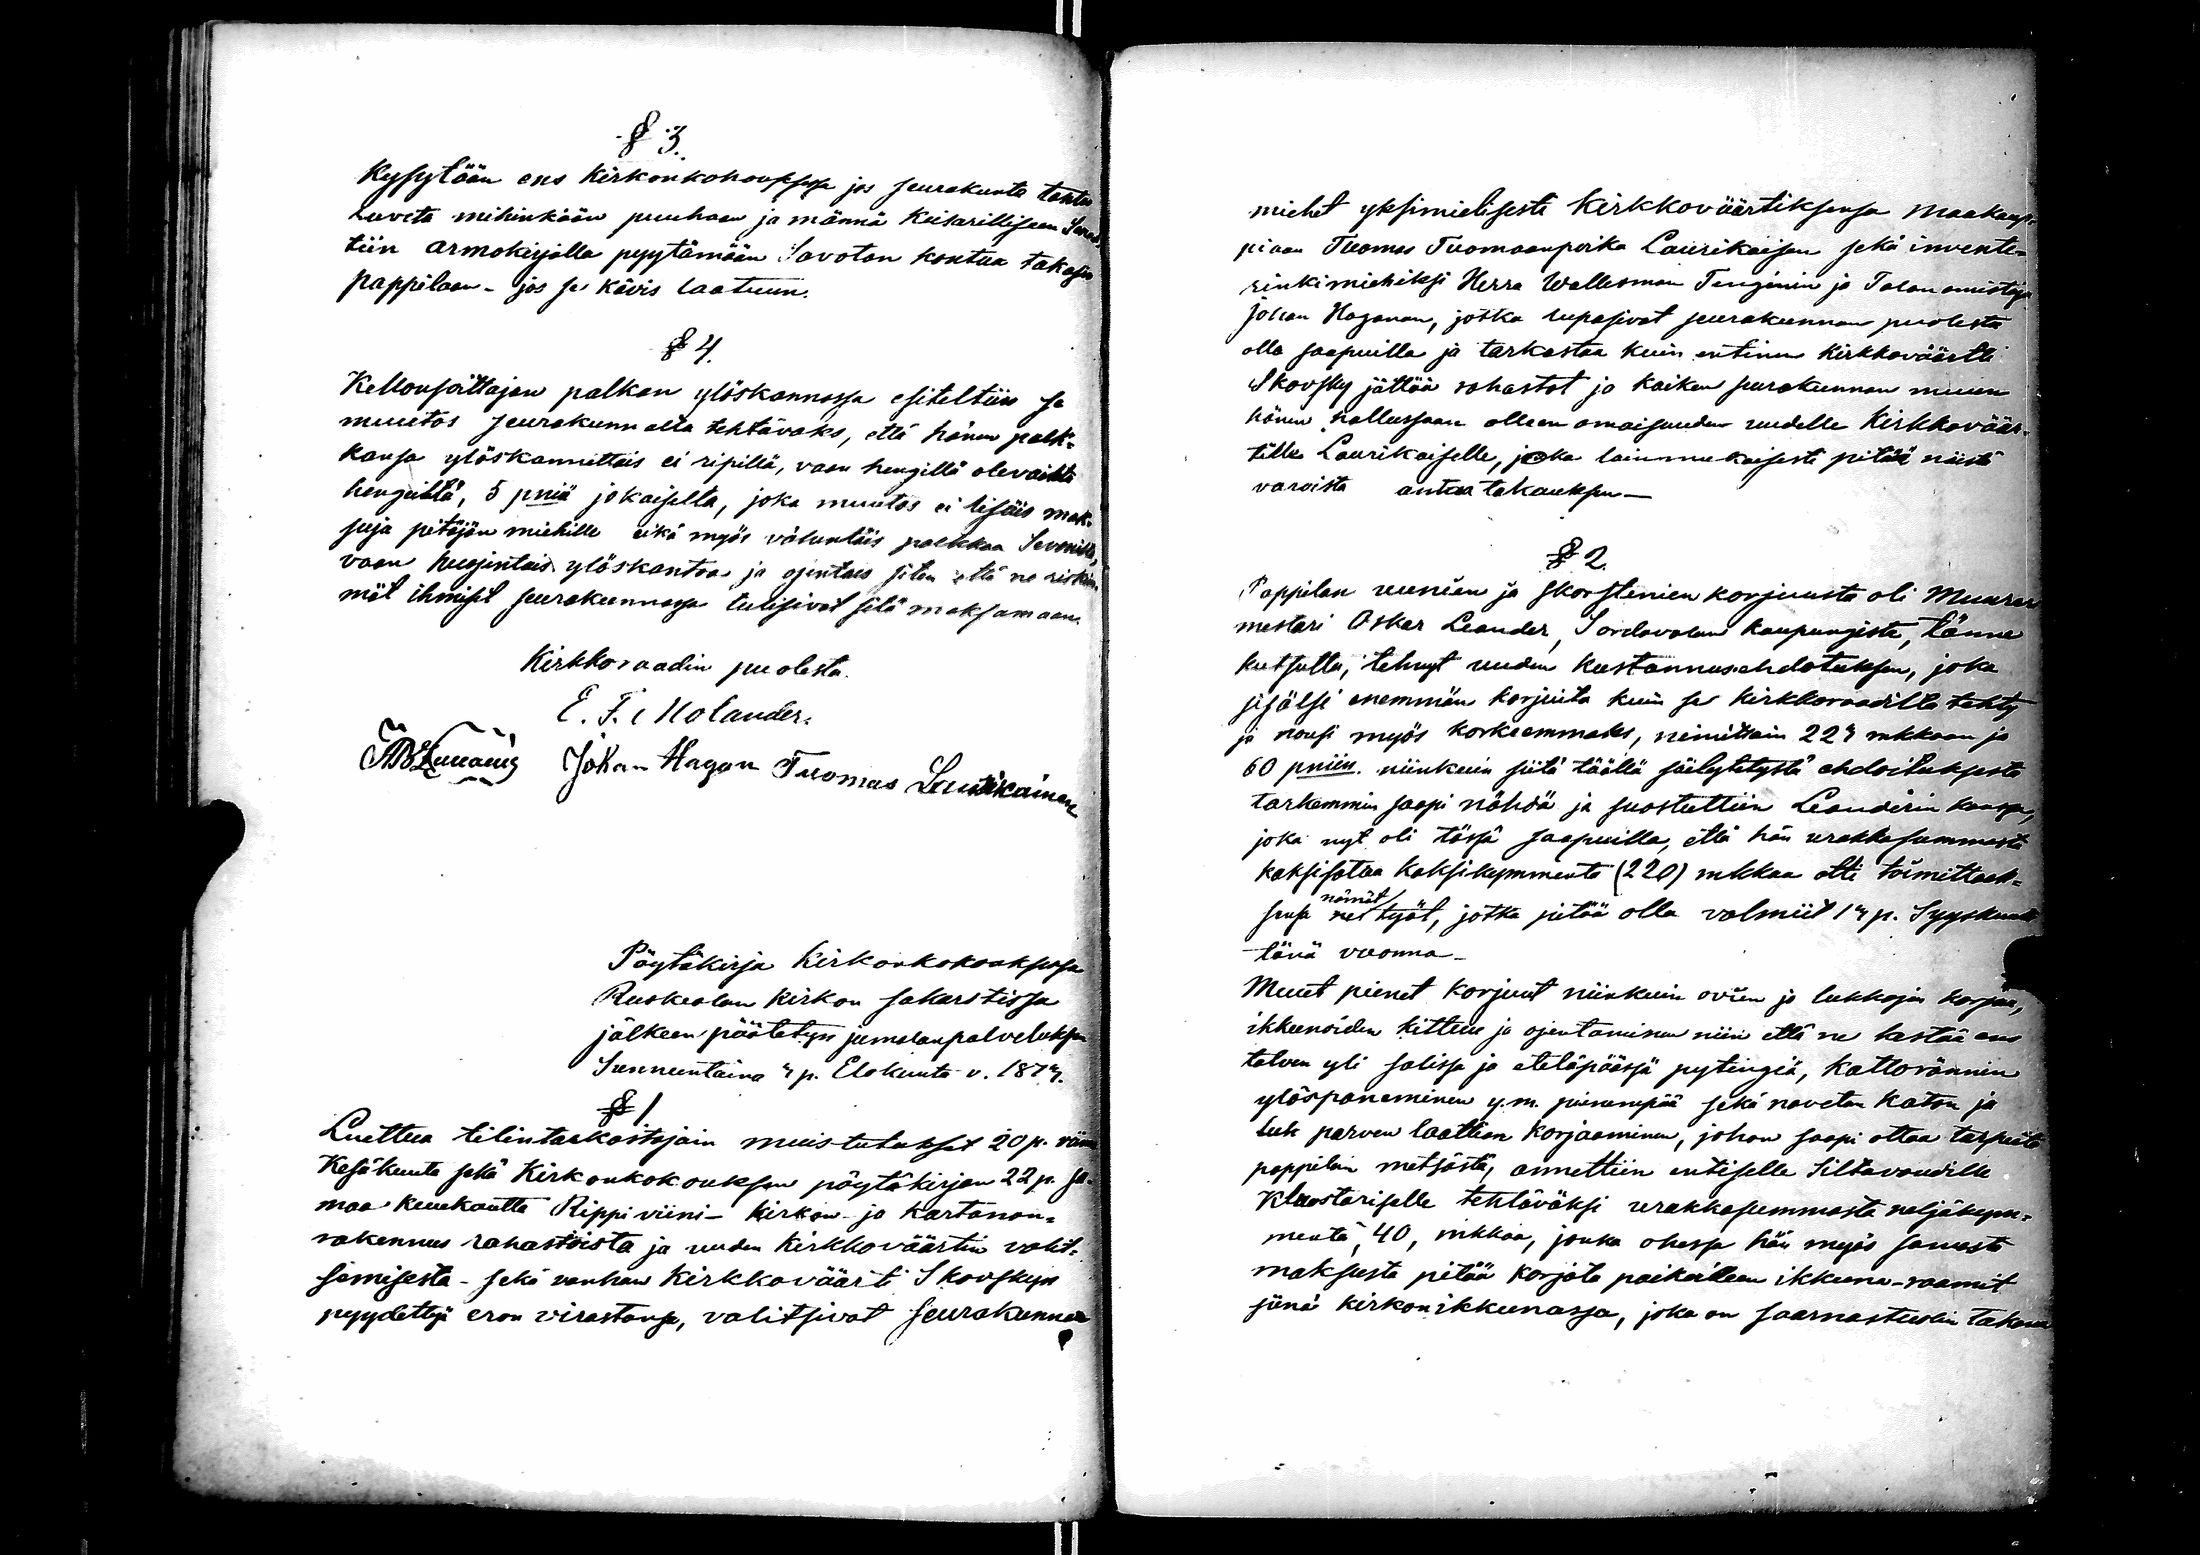 § 3.
Kysytään ens Kirkonkokouksessa jos seurakunta tahtoo
luveta mihinkään puuhaan ja männä Keisarillisseen Senat-
tiin armokirjalla pyytämään Savotan hovtua takasin
pappilaan - jos se kävis laatuun.
§ 4.
Kellonsoittajan palkan ylöskannossa esiteltiin se
muutos seurakunnalta tehtäväks, että hänen palk-
kansa ylöskannettais ei ripillä, vaan hengillä olevailta
hengiltä, 5 pniä jokaiselta, joka muutos ei lisäis mak-
suja pitäjän miehille eikä myös vähentäis palkkaa
vaan huojentais ylöskantoa ja ojentais siten että ne
mät ihmiset seurakunnassa tulisivat sitä maksamaan.
Kirkkoraadin puolesta.
E. F. Molander.
Johan Hagan Tuomas Laurikainen
Pöytäkirja Kirkonkokouksessa
Ruskealan Kirkon sakaristissa
jälkeen päätetyn jumalanpalveluksen
Sunnuntaina 5 p. Elokuuta v. 1877.
§ 1
Luettua tilintarkastajain muistutukset 20 p. viime
Kesäkuuta sekä Kirkonkokouksen pöytäkirjan 22 p. sa-
maa kuukautta Rippiviini- kirkon- ja kartanon-
rakennus rahastoista ja uuden Kirkkoväärtin valit-
semisesta - sekä vanhan Kirkkoväärti Skovskyn
pyydettyä eron virastansa, valitsivat seurakunnan
miehet yksimielisesti Kirkkoväärtiksensä Maakaup-
piaan Tuomas Tuomaanpoika Laurikaisen sekä invente-
rinkimiehiksi Herra Wallesman Tenginin ja Talonomistaja
Johan Haganan, jotka lupasivat seurakunnan puolesta
olla saapuilla ja tarkastaa kuin entinen Kirkkoväärtti
Skovsky jättää rahastot ja kaiken seurakunnan muun
hänen hallussaan olleen omaisuuden uudelle Kirkkoväär-
tille Laurikaiselle, joka lainmukaisesti pitää niistä
varoista antaa takauksen —
§ 2.
Pappilan uunien ja skorstenien korjuusta oli Muurar
mestari Oskar Leander, Sordavalan kaupungista, tänne
kutsuttu, tehnyt uuden kustannusehdotuksen, joka
sisälsi enemmän korjuuta kuin se kirkkoraadilta tehty
ja nousi myös korkeammaks, nimittäin 227 mkkaan ja
60 pniin. niinkuin siitä täällä säilytetystä ehdoituksesta
tarkemmin saapi nähdä ja suostuttiin Leanderin kanssa,
joka nyt oli tässä saapuilla, että hän urakkasummasta
kaksisataa kaksikymmentä (220) mkkaa otti toimittaak-
sensa nämät työt, jotka pitää olla valmiit 15 p. Syyskuuta
tänä vuonna -
Muut pienet korjuut niinkuin ovien ja lukkojen korjuu,
ikkunoiden kittuu ja ojentaminen niin että ne kestää ens
talven yli salissa ja eteläpäässä pytingiä, kattorännin
ylöspaneminen y.m. pienempää sekä navetan katon ja
luk parven laattian korjaaminen, johon saapi ottaa tarpeita
pappilan metsästä, annettiin entiselle Siltavoudille
Kluostariselle tehtäväksi urakkasummasta neljäkym-
mentä, 40, mkkaa, jonka ohessa hän myös samasta
maksusta pitää korjata paikoilleen ikkuna-raamit
siinä kirkonikkunassa, joka on saarnastuolin takana